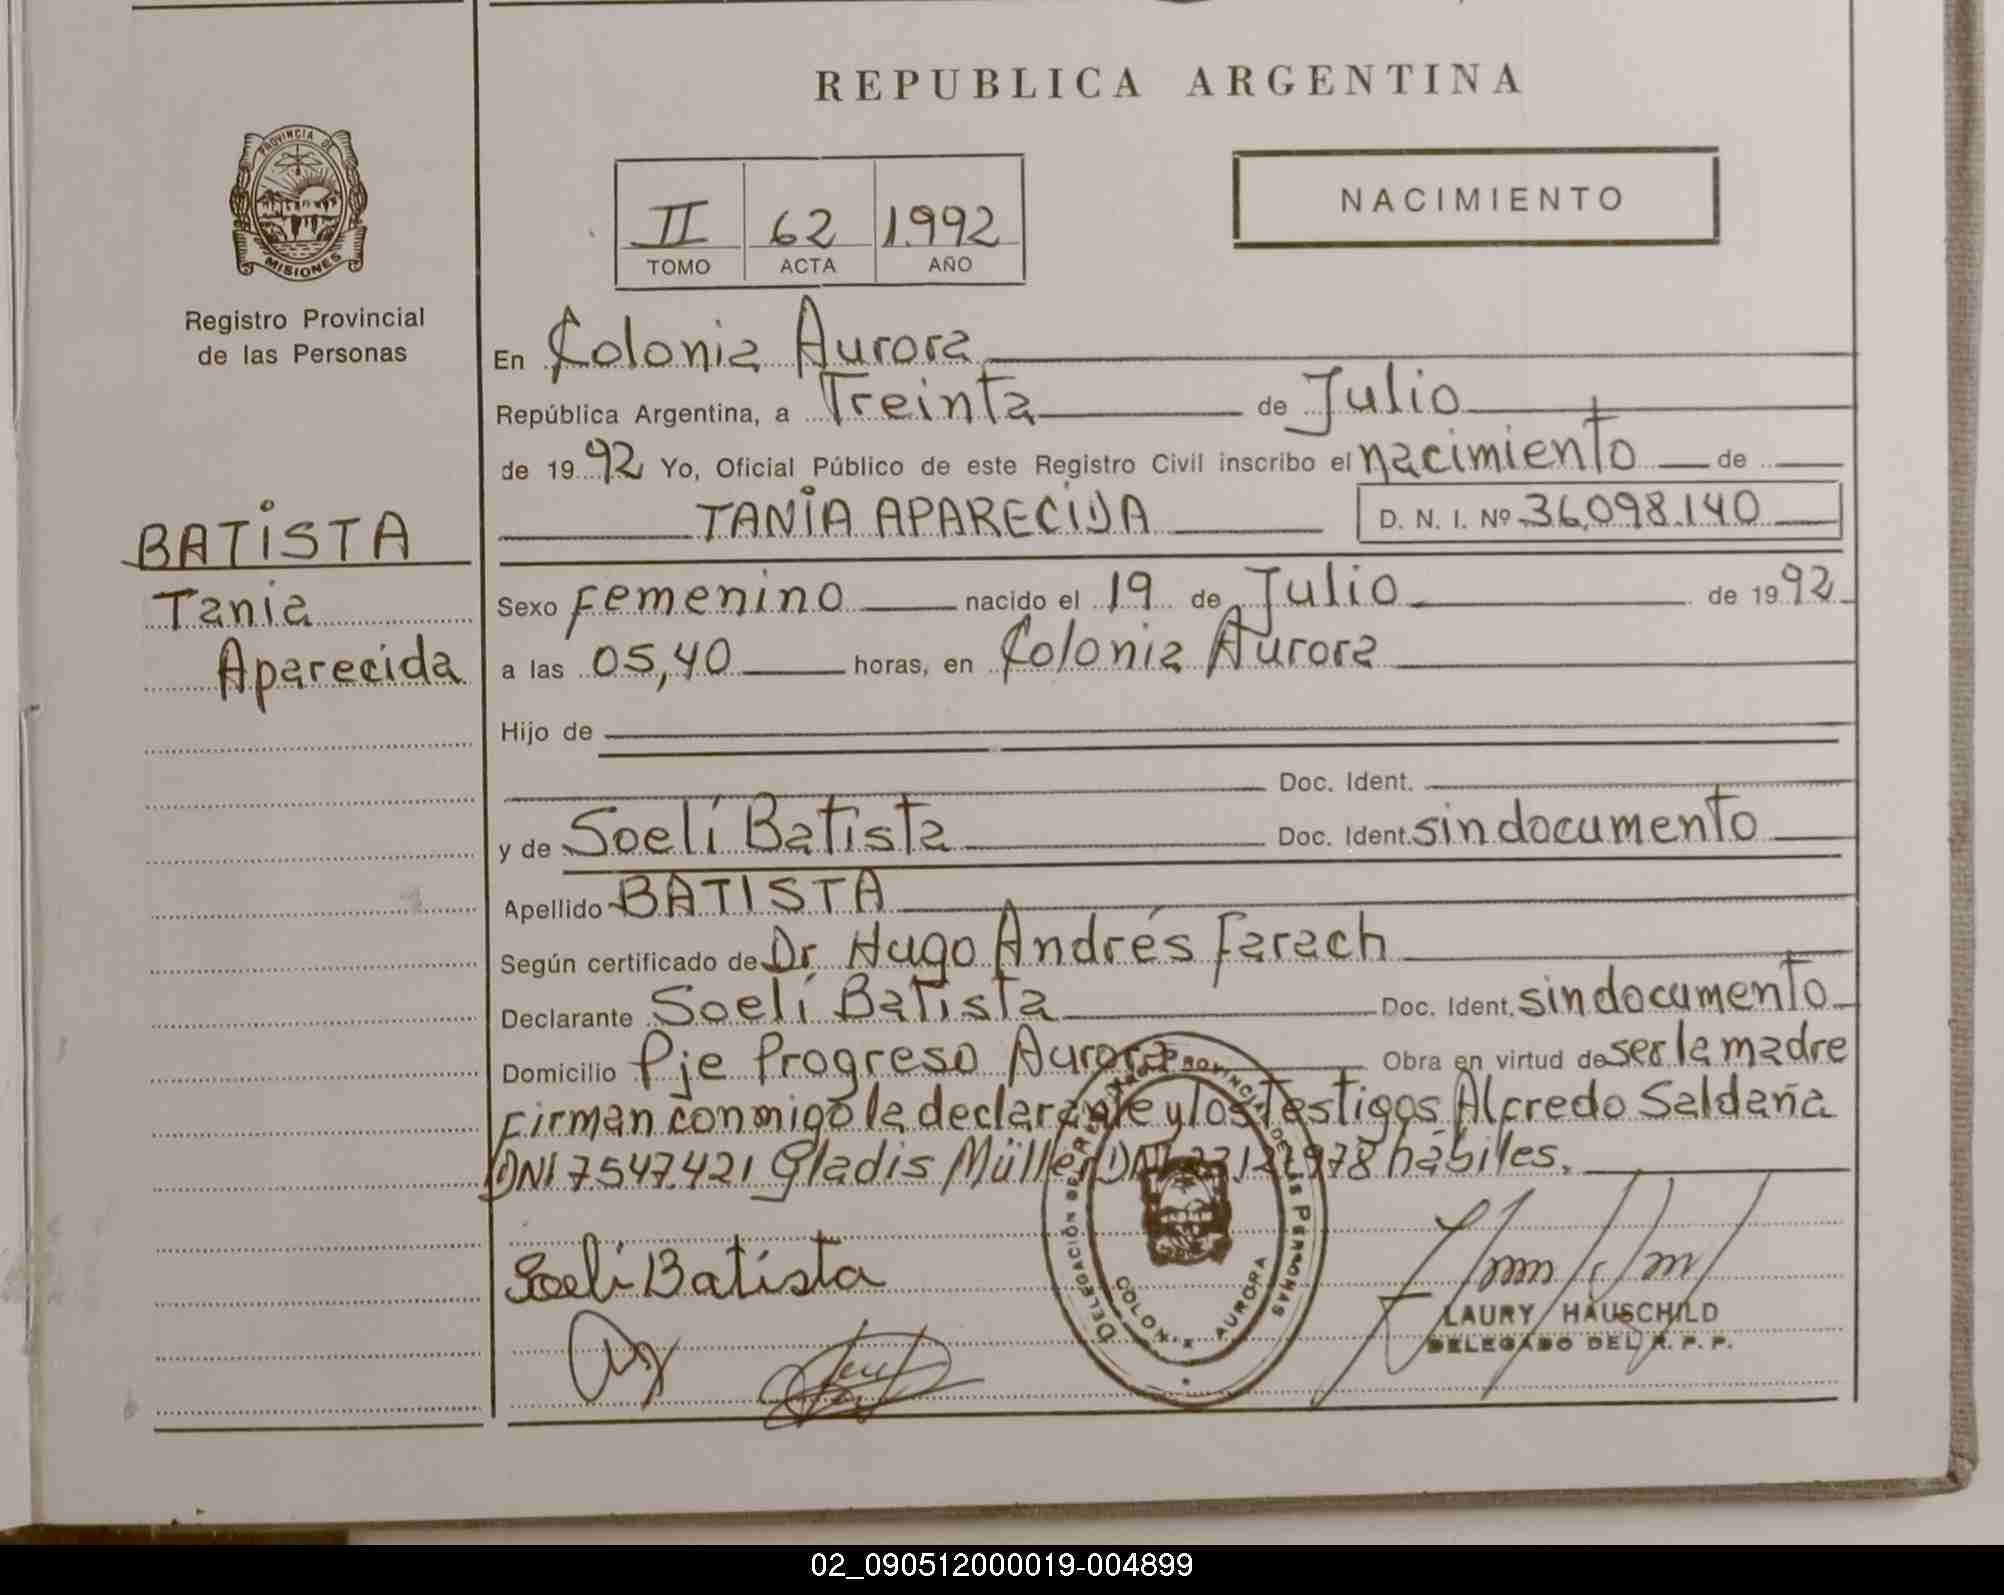 REPUBLICA ARGENTINA
PROVINCIA DE
MISIONES
Registro Provincial
de las Personas
II 62 1992
TOMO ACTA AÑO
NACIMIENTO
BATISTA
Tania
Aparecida
En Colonia Aurora
República Argentina, a Treinta de Julio
de 1992 Yo, Oficial Público de este Registro Civil inscribo el nacimiento de
TANIA APARECIDA D. N. I. Nº 36.098.140
Sexo Femenino nacido el 19 de Julio de 1992
a las 05,40 horas, en Colonia Aurora
Hijo de
Doc. Ident.
y de Soelí Batista Doc. Ident. sin documento
Apellido BATISTA
Según certificado de Dr Hugo Andrés Farach
Declarante Soelí Batista Doc. Ident. sin documento
Domicilio Pje Progreso Aurora Obra en virtud de ser la madre
Firman conmigo la declarante y los Testigos Alfredo Saldaña
DNI 7547.421 Gladis Müller DNI hábiles.
Soeli Batista
COLONIA AURORA
LAURY HAUSCHILD
DELEGADO DEL R. P. P.
02_090512000019-004899